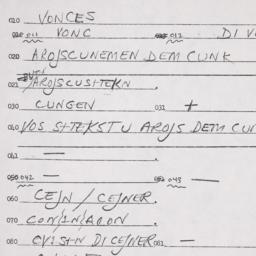 010 VONCES
011 VONC 012 DI V
020 AROJSCUNEMEN DEM CUNK
021 AROJSCUSITEKN.
030 CUNGEN 031 +
040 VOS SITEKSTU AROJS DEM CUN
041 —
042 — 043 —
060 CEJN / CEJNER.
070
080 DI CEJNER 081 —